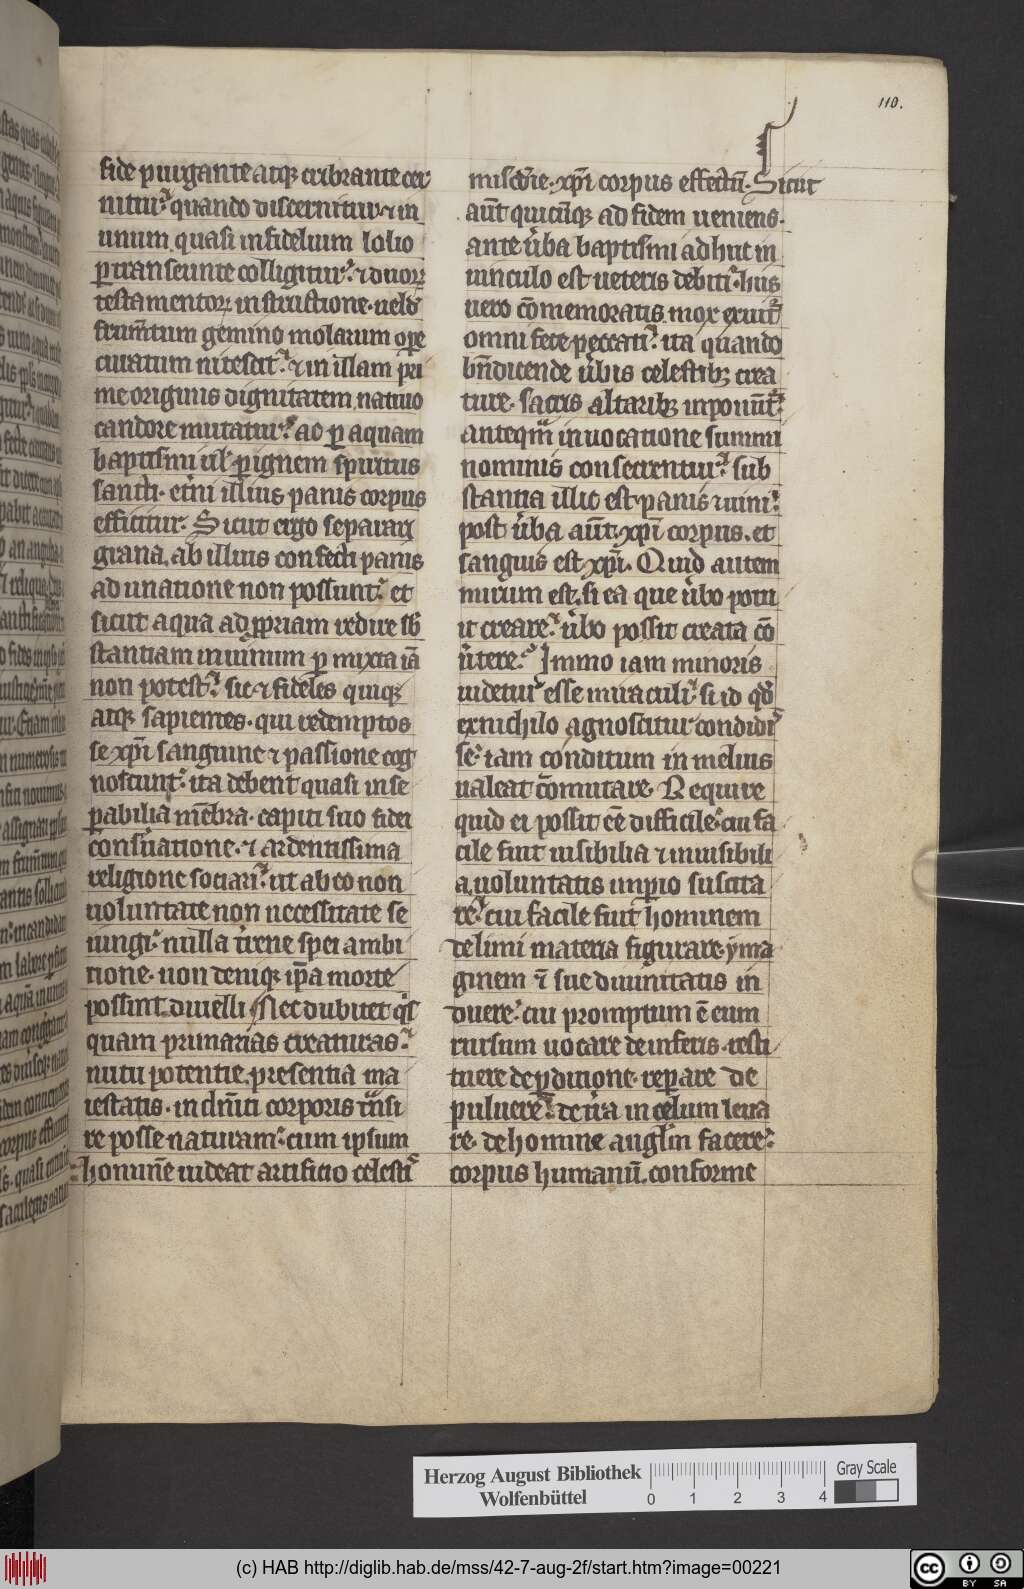 110.
fide purgante atqꝫ cribrante cer
nitur quando discernitur ⁊ in
unum quasi infidelium lolio
ꝑtranseunte colligitur ⁊ duoꝝ
testamentoꝝ instructione uelđ
frum̄tum gemino molarum oꝑe
curatum nitescit ⁊ in illam pri
me originis dignitatem natiuo
candore mutatur ac ꝑ aquam
baptismi uł ꝑ ignem spiritus
sancti. et̓ni illius panis corpus
efficitur. Sicut ergo separari
grana ab illius confecti panis
adunatione non possunt et
sicut aqua ad ꝓpriam redire sb̄
stantiam in uinum ꝑmixta iā
non potest sic ⁊ fideles quiqꝫ
atqꝫ sapientes. qui redemptos
se xp̄i sanguine ⁊ passione cog
noscunt ita debent quasi inse
ꝑabilia mēbra. capiti suo fidei
conẜuatione. ⁊ ardentissima
religione sociari ut ab eo non
uoluntate non necessitate se
iungi nulla t̓rene spei ambi
tione. non deniqꝫ ip̄a morte
possint diuelli Nec dubitet qͥs
quam primarias creaturas
nutu potentie. presentia ma
iestatis. in dn̄ici corporis t̄nsi
re posse naturam cum ipsum
hominē uideat artificio celesti
misc̄die. xp̄i corpus effectū. Sicut
aūt quicūqꝫ ad fidem ueniens.
ante u̓ba baptismi adhuc in
uinculo est ueteris debiti his
uero cōmemoratis mox exuit̓
omni fece peccati ita quando
bn̄dicende u̓bis celestibꝫ crea
ture. sacris altaribꝫ inponūt̓
anteqͣm inuocatione summi
nominis consecrentur sub
stantia illic est panis ⁊ uini
post u̓ba aūt xp̄i corpus. et
sanguis est xp̄i. Quid autem
mirum est si ea que u̓bo potu
it creare u̓bo possit creata cō
u̓tere Immo iam minoris
uidetur esse miraculi si id qđ
ex nichilo agnoscitur condidi
se iam conditum in melius
ualeat cōmutare. Require
quid ei possit ēē difficile cui fa
cile fuit uisibilia ⁊ inuisibili
a uoluntatis inp̓io suscita
re cui facile fuit hominem
de limi materia figurare. yma
ginem ⁊̄ sue diuinitatis in
duere cui promptum ē eum
rursum uocare de inferis. resti
tuere de ꝑditione. reꝑare de
puluere de t̓ra in celum leua
re. de homine angl̄m facere
corpus humanū. conforme
Herzog August Bibliothek
Wolfenbüttel
Gray Scale
0 1 2 3 4
(c) HAB http://diglib.hab.de/mss/42-7-aug-2f/start.htm?image=00221
cc BY SA